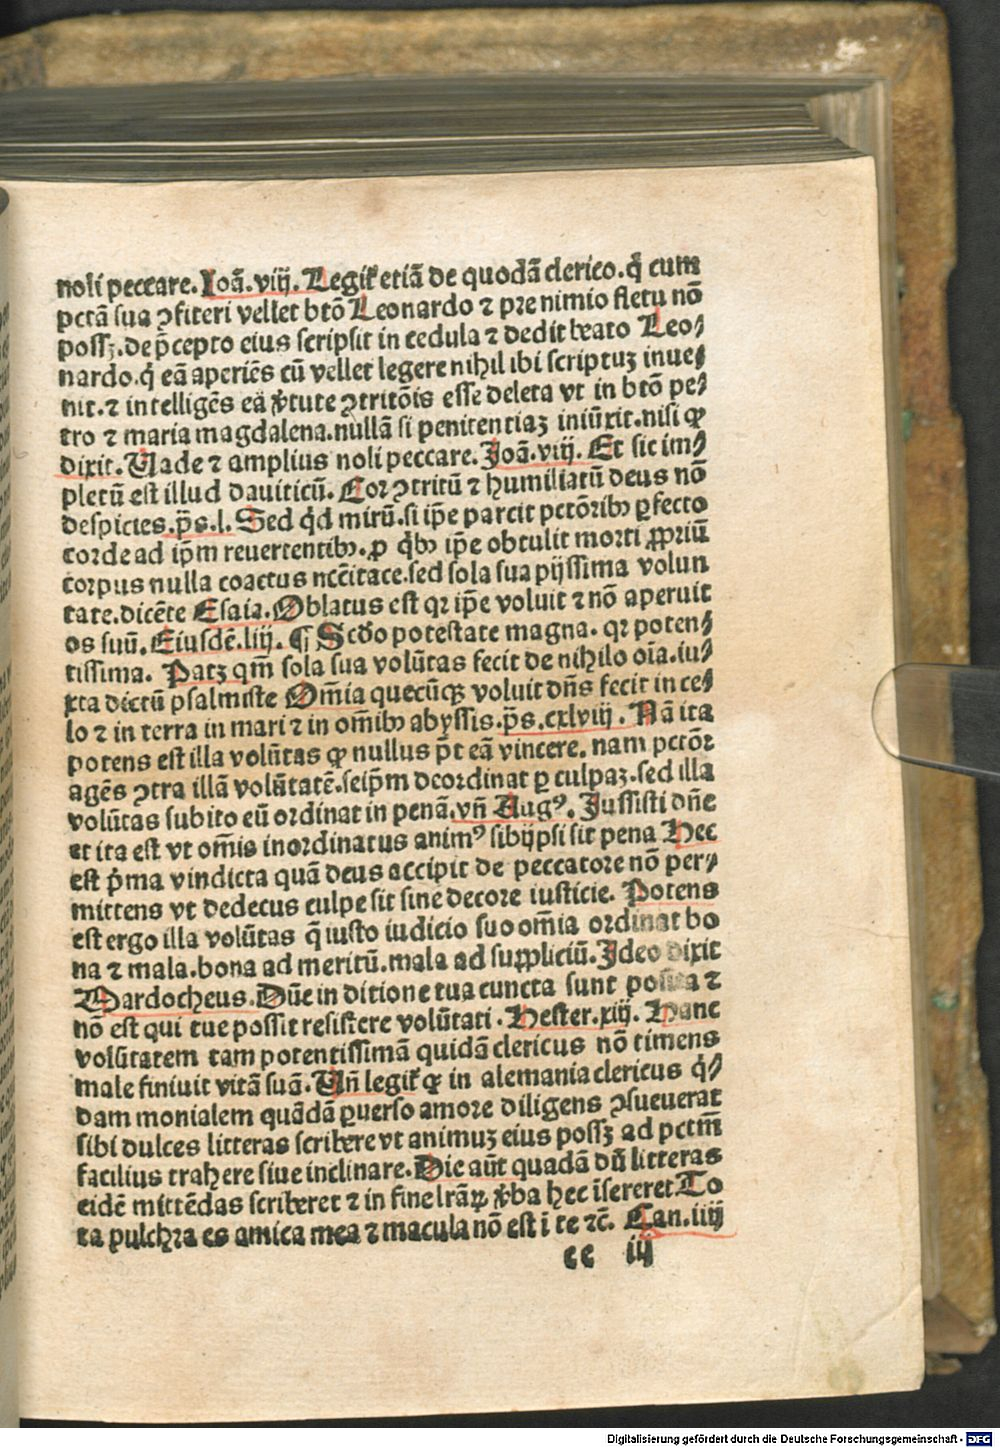 noli peccare. Ioã. viij. Legit͛ etiã de quodã clerico. q̃ cum
pctã sua ꝯfiteri vellet btõ Leonardo ⁊ pre nimio fletu nõ
possꝫ. de p̃cepto eius scripsit in cedula ⁊ dedit beato Leo⸗
nardo. q̃ eã aperiẽs cũ vellet legere nihil ibi scriptuꝫ inue⸗
nit. ⁊ intelligẽs eã ꝟtute ꝯtritõis esse deleta vt in btõ pe⸗
tro ⁊ maria magdalena. nullã si penitentiaꝫ iniũxit. nisi ꝙ
dixit. Uade ⁊ amplius noli peccare. Joã. viij. Et sic im⸗
pletũ est illud dauiticũ. Cor ꝯtritũ ⁊ humiliatũ deus nõ
despicies. p̃s. l. Sed q̃d mirũ. si ip̃e parcit pctõribꝰ ꝑfecto
corde ad ip̃m reuertentibꝰ. ꝓ q̃bꝰ ip̃e obtulit morti ꝓpriũ
corpus nulla coactus nccẽitace. sed sola sua pijssima volun
tate. dicẽte Esaia. Oblatus est qꝛ ip̃e voluit ⁊ nõ aperuit
os suũ. Eiusdẽ. liij. ¶ Scđo potestate magna. qꝛ poten⸗
tissima. Patꝫ qm̃ sola sua volũtas fecit de nihilo oĩa. iu⸗
xta dictũ psalmiste Om̃ia quecũqꝫ voluit dñs fecit in ce⸗
lo ⁊ in terra in mari ⁊ in om̃ibꝰ abyssis. p̃s. cxlviij. Nã ita
potens est illa volũtas ꝙ nullus p̃t eã vincere. nam pctõꝛ
agẽs ꝯtra illã volũtatẽ. seip̃m deordinat ꝑ culpaꝫ. sed illa
volũtas subito eũ ordinat in penã. vñ Augꝰ. Jussisti dñe
et ita est vt om̃is inordinatus animꝰ sibijpsi sit pena Hec
est p̃ma vindicta quã deus accipit de peccatore nõ per⸗
mittens vt dedecus culpe sit sine decore iusticie. Potens
est ergo illa volũtas q̃ iusto iudicio suo om̃ia ordinat bo
na ⁊ mala. bona ad meritũ. mala ad suppliciũ. Ideo dixit
Mardocheus. Dñe in ditione tua cuncta sunt posita ⁊
nõ est qui tue possit resistere volũtati. Hester. xiij. Hanc
volũtatem tam potentissimã quidã clericus nõ timens
male finiuit vitã suã. Uñ legit͛ ꝙ in alemania clericus q̃⸗
dam monialem quãdã ꝑuerso amore diligens ꝯsueuerat
sibi dulces litteras scribere vt animuꝫ eius possꝫ ad pctm̃
facilius trahere siue inclinare. Die aũt quadã dũ litteras
eidẽ mittẽdas scriberet ⁊ in fine lr̃aꝝ ꝟba hec ĩsereret To
ta pulchra es amica mea ⁊ macula nõ est ĩ te ⁊c̃. Can. iiij
cc iij
Digitalisierung gefördert durch die Deutsche Forschungsgemeinschaft - DFG